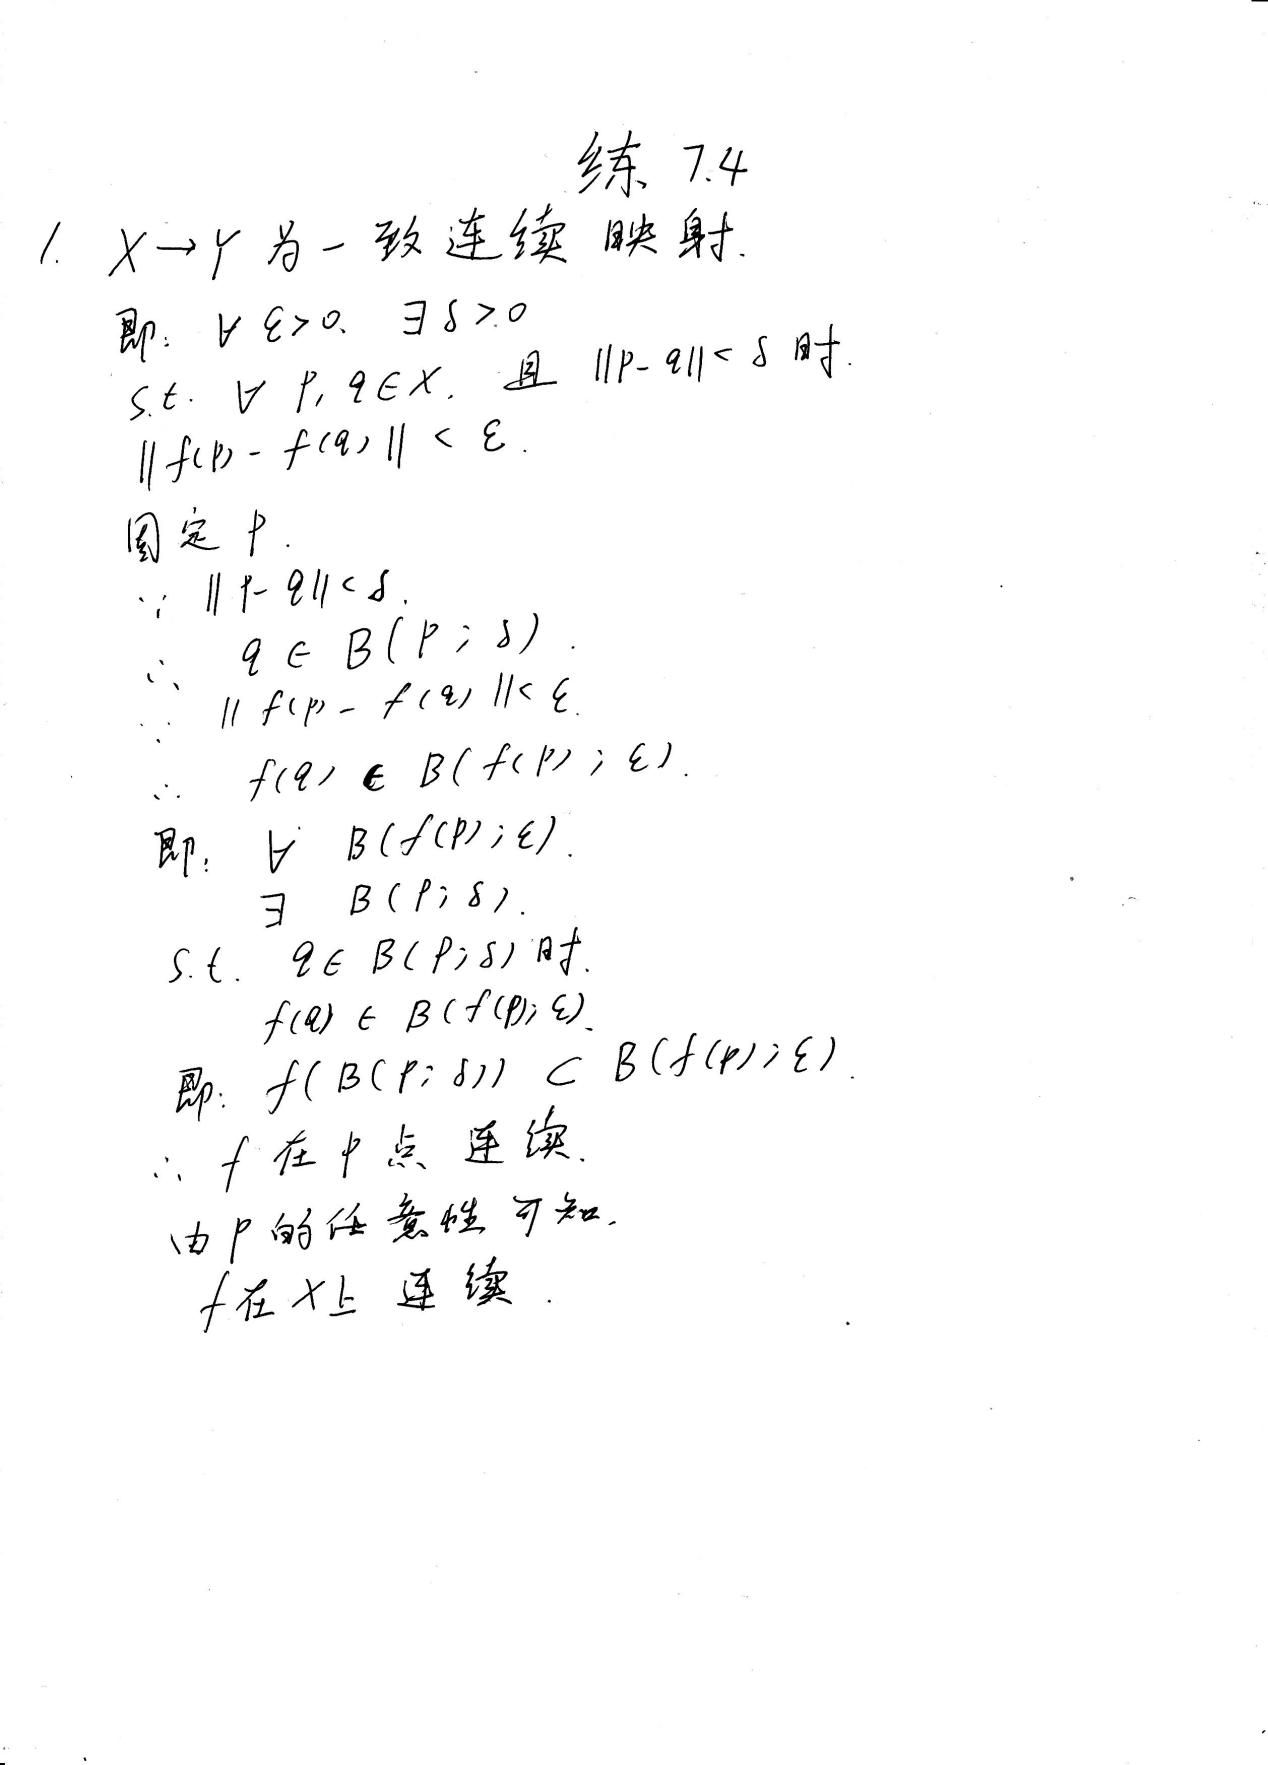 练 7.4
1. X→Y 为一致连续映射.
即: ∀ ε>0. ∃ δ>0
s.t. ∀ p, q∈X. 且 ||p-q||<δ 时.
||f(p)-f(q)||<ε.
固定 p.
∵ ||p-q||<δ.
∴ q∈B(p;δ).
∵ ||f(p)-f(q)||<ε.
∴ f(q)∈B(f(p);ε).
即: ∀ B(f(p);ε).
∃ B(p;δ).
s.t. q∈B(p;δ)时.
f(q)∈B(f(p);ε).
即: f(B(p;δ))⊂B(f(p);ε).
∴ f在p点连续.
由p的任意性可知.
f在X上连续.